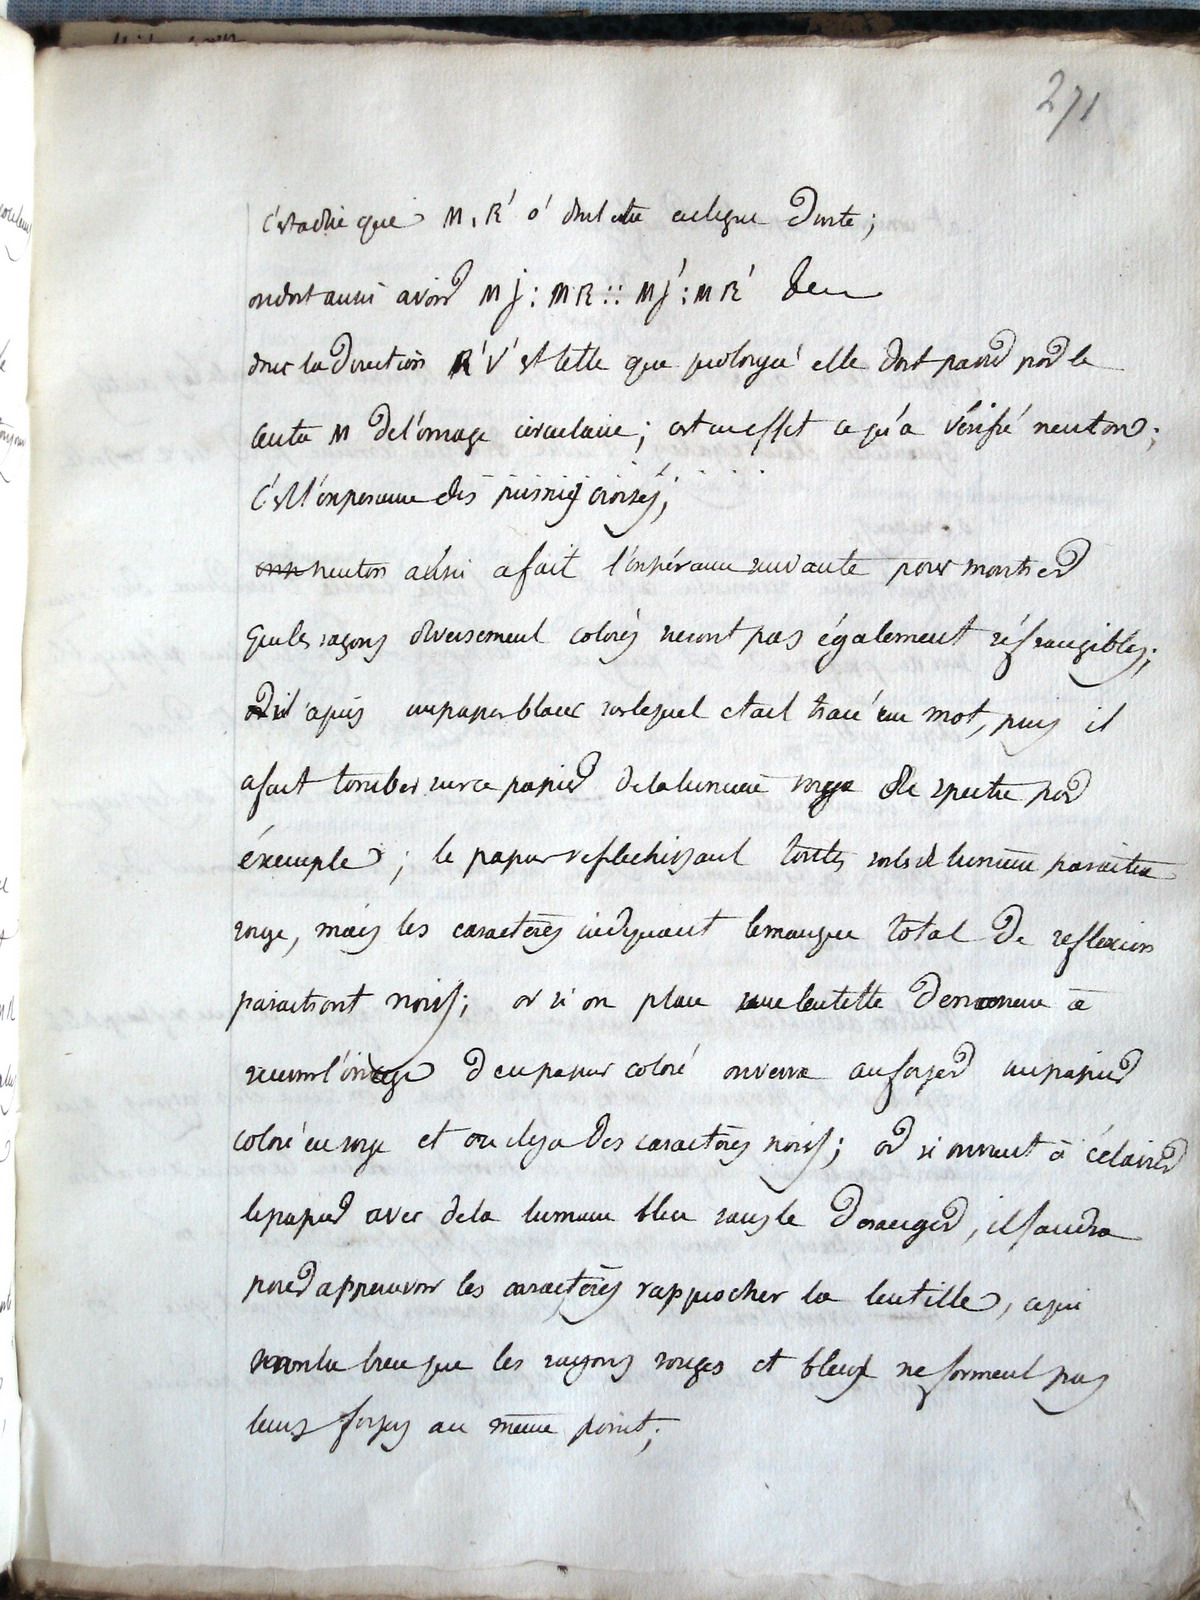 271
c'est adire que M, R' o' doivent etre en ligne droite;
on doit aussi avoir MJ : MR :: MJ' : MR'
donc la direction R'V' est telle que prolongée elle doit passer par le
centre M de l'image circulaire; c'est en effet ce qu'a vérifié neuton;
C'est l'experience des prismes croisés;
neuton aussi a fait l'expérience suivante pour montrer
que les rayons diversement colorés ne sont pas également réfrangibles;
il a pris un papier blanc sur lequel etait tracé un mot, puis il
a fait tomber sur ce papier de la lumiere rouge du spectre par
éxemple; le papier reflechissant toute la lumiere paraitra
rouge, mais les caractères indiquant le manque total de reflexion
paraitront noirs; or si on place une lentille de maniere à
recevoir l'image d'un papier coloré on verra au foyer un papier
coloré en rouge et au dessus des caractères noirs; or si on vient à éclairer
le papier avec de la lumiere bleu sans le deranger, il faudra
pour appercevoir les caractères rapprocher la lentille, ce qui
montre bien que les rayons rouges et bleux ne forment pas
leurs foyers au même point;